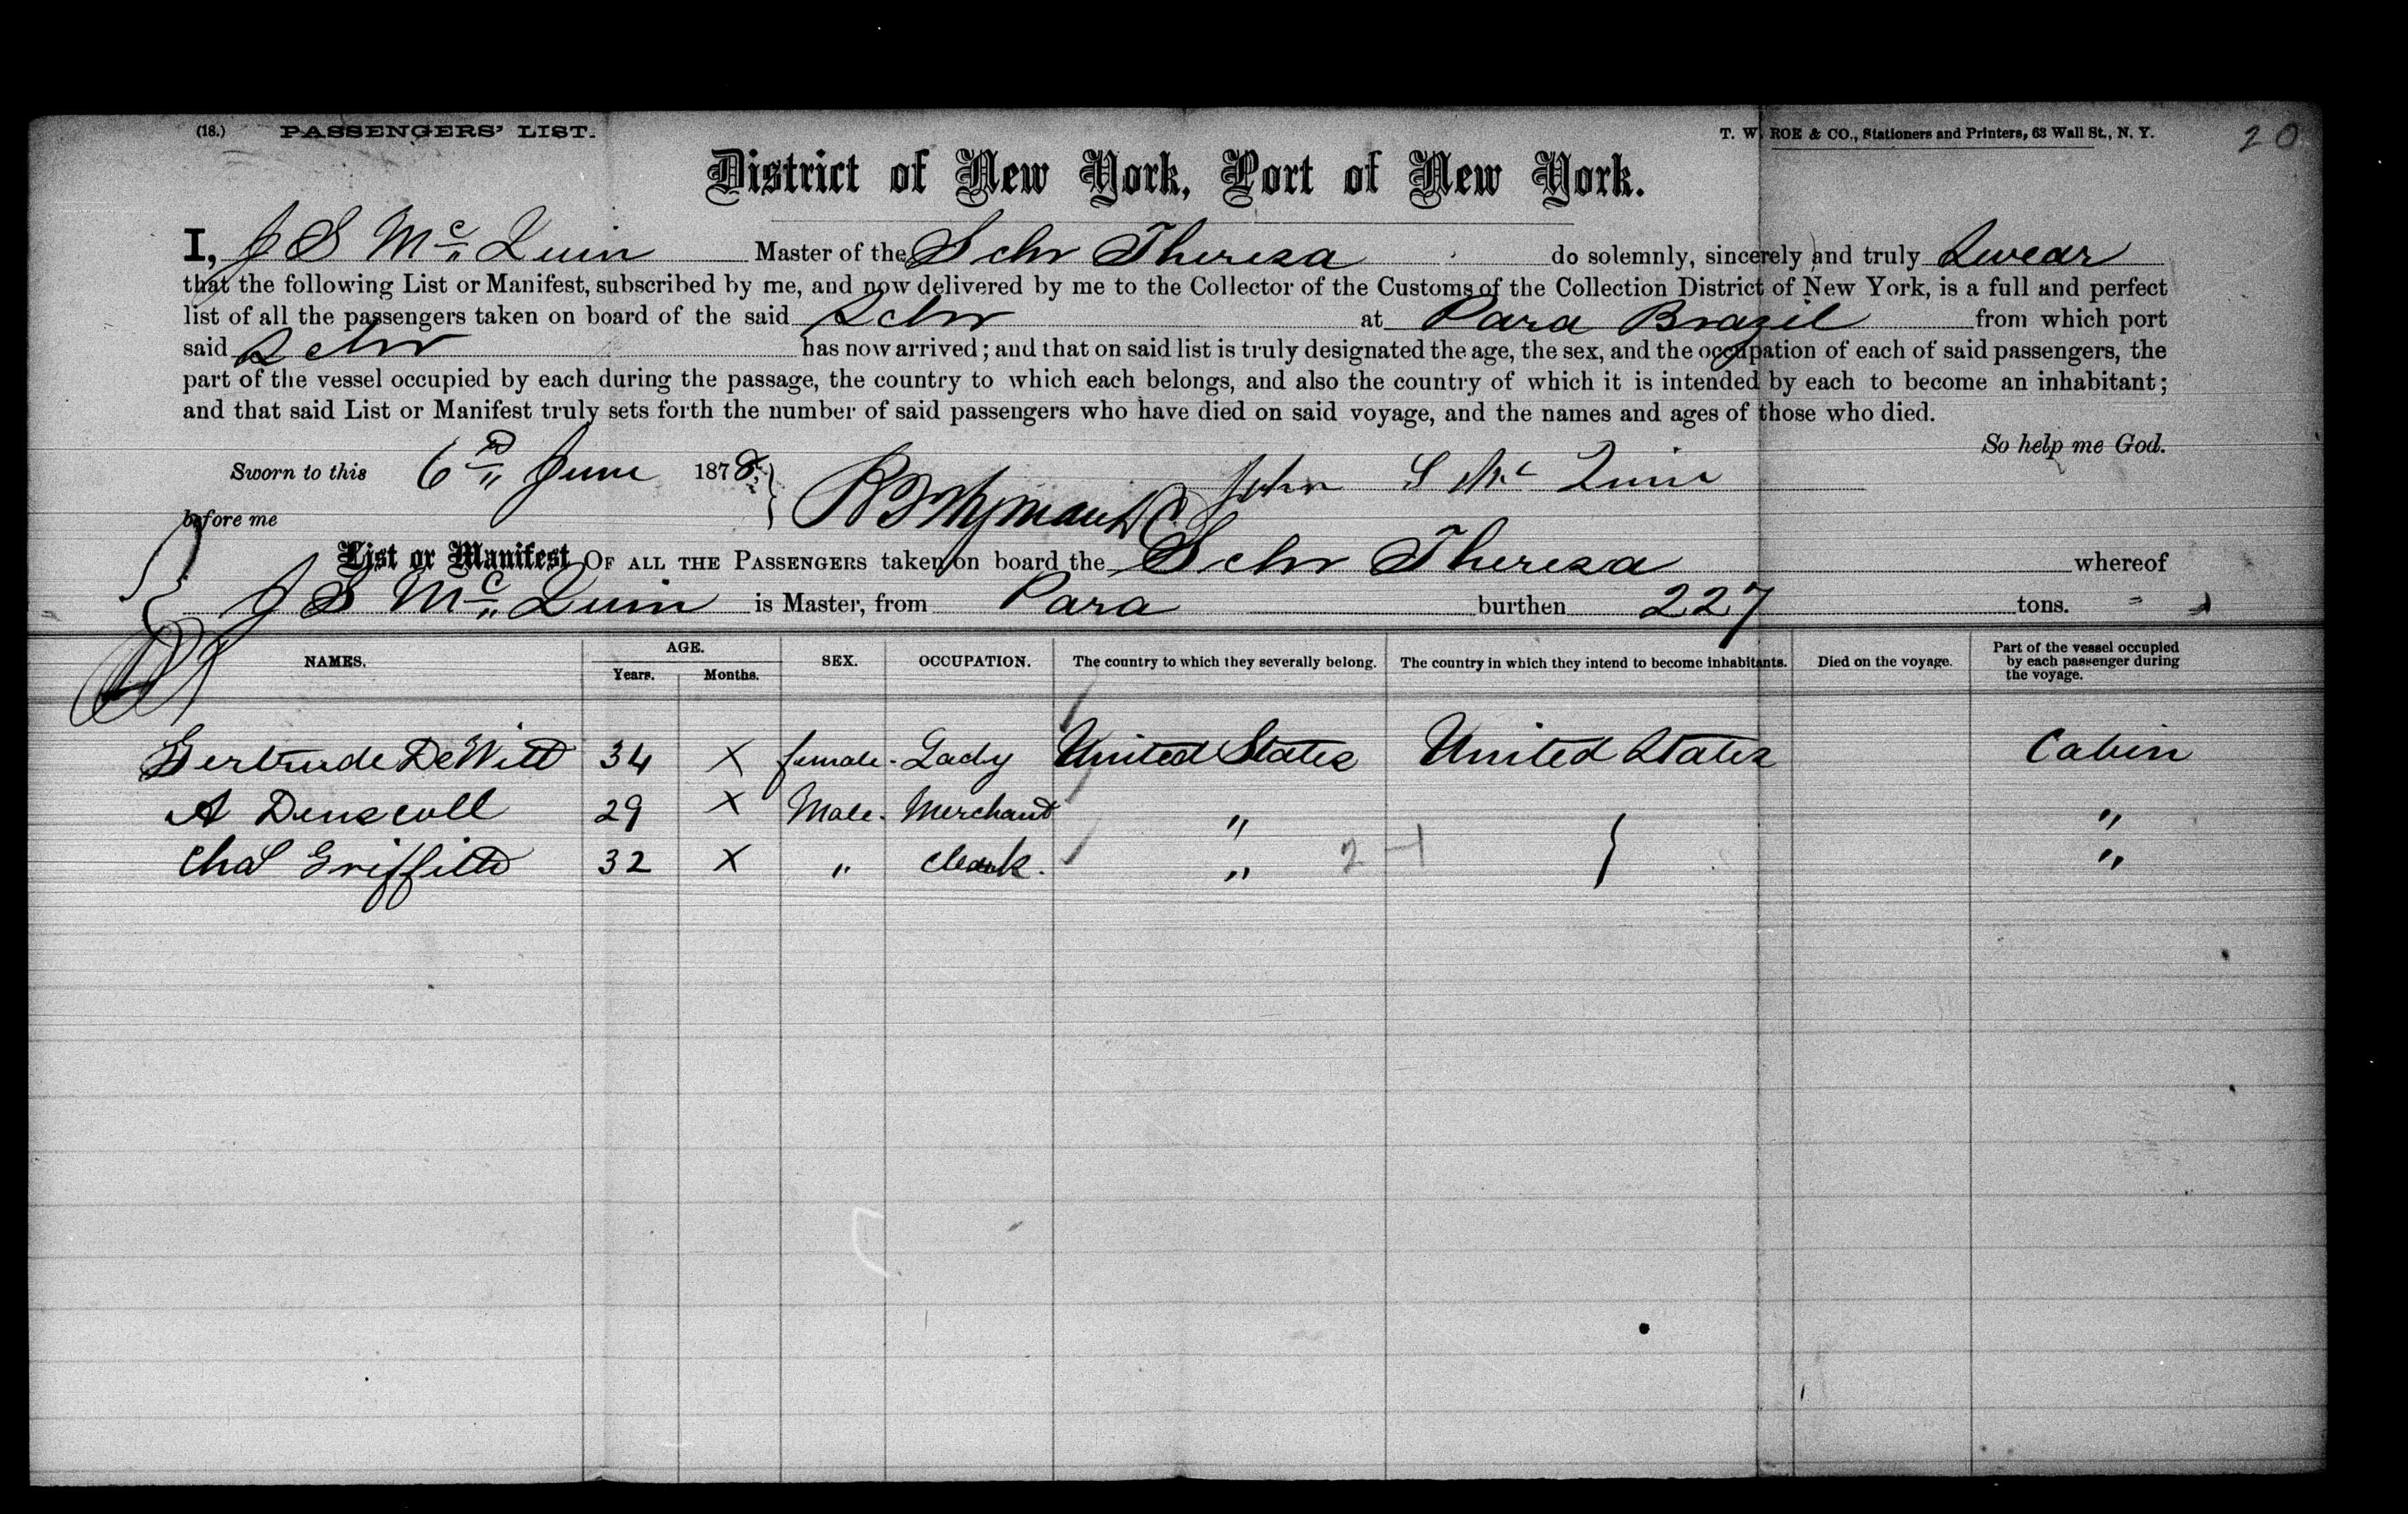 (18.) PASSENGERS' LIST. T. W. ROE & CO., Stationers and Printers, 63 Wall St., N. Y. 20
District of New York, Port of New York.
I, J S Mc Quin Master of the Schr Theresa do solemnly, sincerely and truly Swear
that the following List or Manifest, subscribed by me, and now delivered by me to the Collector of the Customs of the Collection District of New York, is a full and perfect
list of all the passengers taken on board of the said Schr at Para Brazil from which port
said Schr has now arrived; and that on said list is truly designated the age, the sex, and the occupation of each of said passengers, the
part of the vessel occupied by each during the passage, the country to which each belongs, and also the country of which it is intended by each to become an inhabitant;
and that said List or Manifest truly sets forth the number of said passengers who have died on said voyage, and the names and ages of those who died.
So help me God.
Sworn to this 6 June 1878, John S Mc Quin
before me
List or Manifest OF ALL THE PASSENGERS taken on board the Schr Theresa whereof
J S Mc Quin is Master, from Para burthen 227 tons.
NAMES. AGE. Years. Months. SEX. OCCUPATION. The country to which they severally belong. The country in which they intend to become inhabitants. Died on the voyage. Part of the vessel occupied by each passenger during the voyage.
Gertrude DeWitt 34 X female. Lady United States United States Cabin
A 29 X Male. Merchant " "
Chas Griffith 32 X " Clerk. " 2 1 "